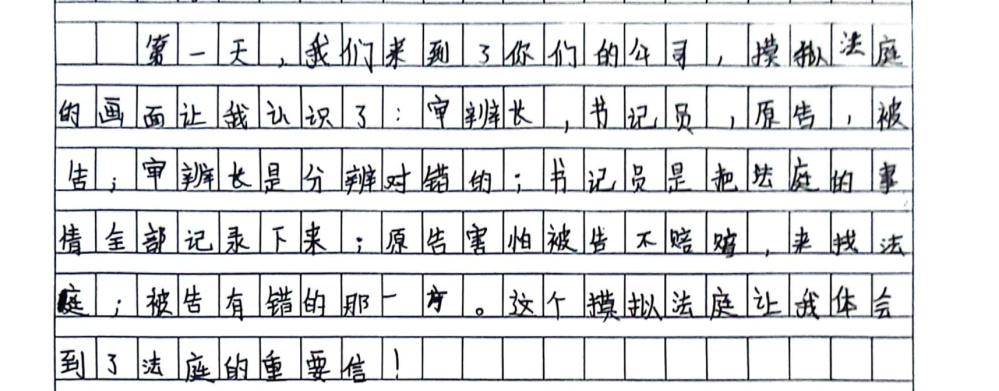 第一天，我们来到了你们的公司，摸拟法庭
的画面让我认识了：审辨长，书记员，原告，被
告；审辨长是分辨对错的；书记员是把法庭的事
情全部记录下来；原告害怕被告不赔赔，来找法
庭；被告有错的那一方。这个摸拟法庭让我体会
到了法庭的重要信！